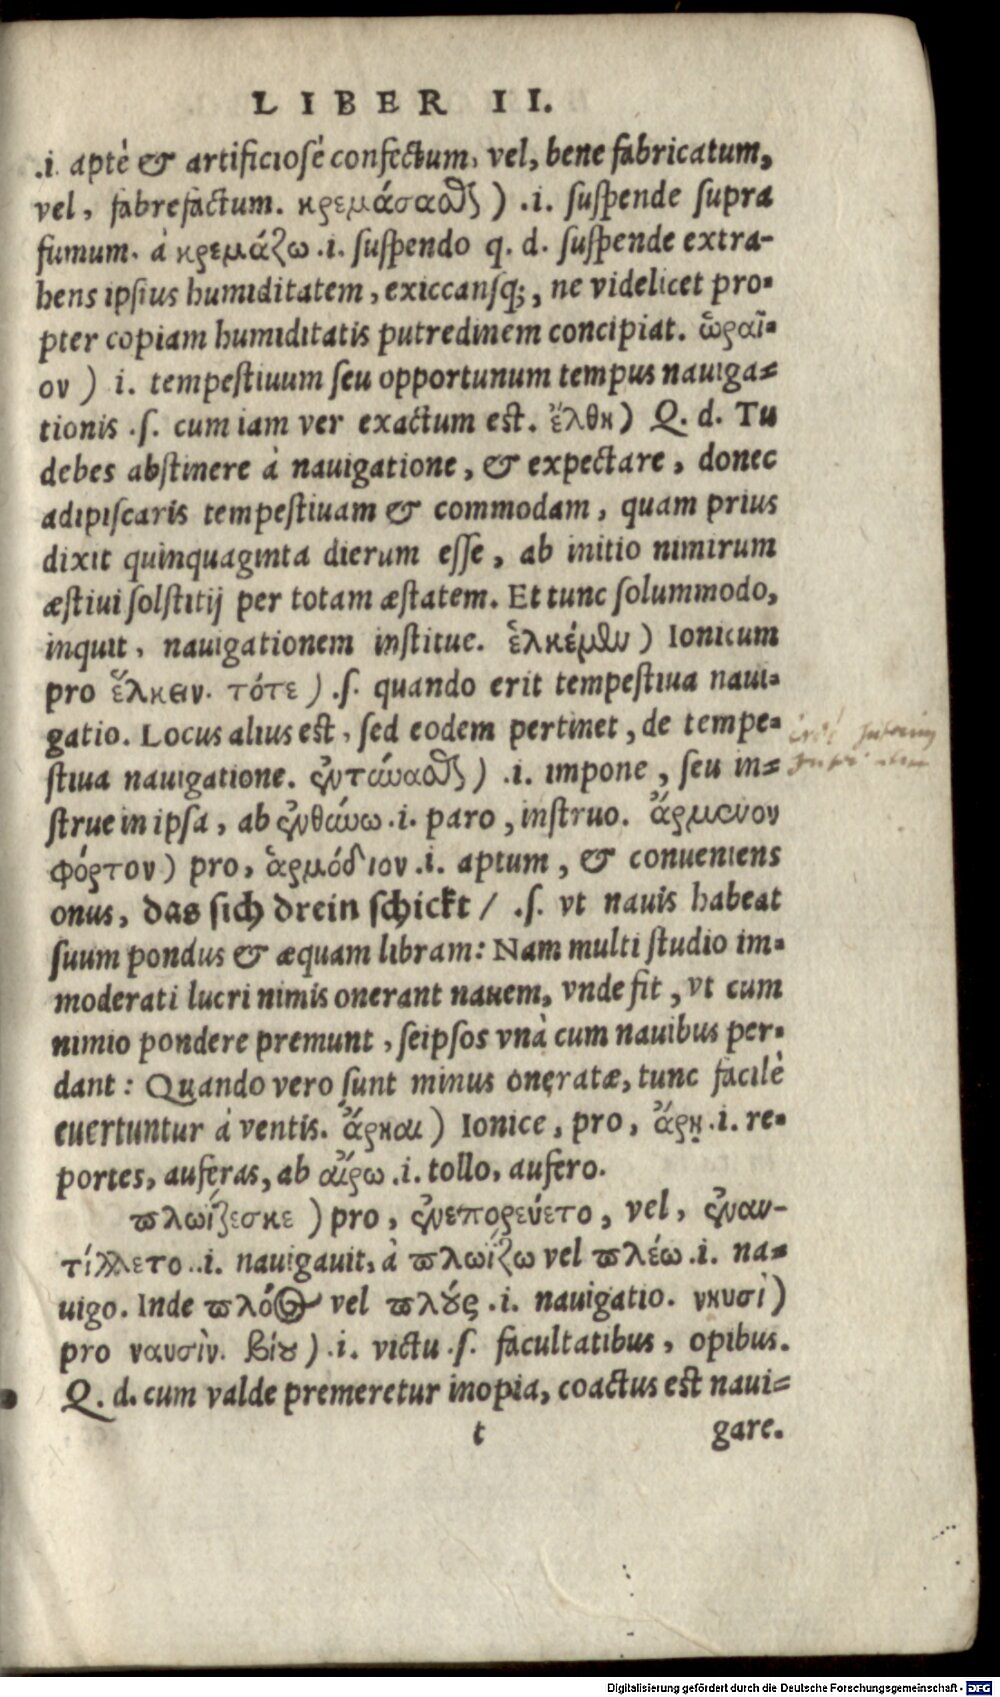 LIBER II.
.i. aptè & artificiosè confectum, vel, bene fabricatum,
vel, fabrefactum. κρεμάσαϑς ) .i. suſpende supra
fumum. à κρεμάζω .i. suſpendo q. d. suſpende extra-
hens ipſius humiditatem, exiccansq;, ne videlicet pro-
pter copiam humiditatis putredinem concipiat. ὥραῖ-
ον ) i. tempeſtiuum ſeu opportunum tempus nauiga-
tionis .ſ. cum iam ver exactum est. ἔλθη) Q. d. Tu
debes abſtinere à nauigatione, & expectare, donec
adipiſcaris tempeſtiuam & commodam, quam prius
dixit quinquaginta dierum eſſe, ab initio nimirum
æſtiui ſolſtitij per totam æſtatem. Et tunc ſolummodo,
inquit, nauigationem inſtitue. ἑλκέμϑυ ) Ionicum
pro ἕλκειν. τότε ) .ſ. quando erit tempeſtiua naui-
gatio. Locus alius est, ſed eodem pertinet, de tempe-
ſtiua nauigatione. ἐντώναϑς ) .i. impone, ſeu in-
ſtrue in ipſa, ab ἐνθώνω .i. paro, inſtruo. ἄρμενον
φόρτον) pro, ἁρμόδιον .i. aptum, & conueniens
onus, das sich drein schickt / .ſ. vt nauis habeat
ſuum pondus & æquam libram: Nam multi ſtudio im-
moderati lucri nimis onerant nauem, vnde fit, vt cum
nimio pondere premunt, ſeipſos vnà cum nauibus per-
dant: Quando vero ſunt minus oneratæ, tunc facilè
euertuntur à ventis. ἄρηαι ) Ionice, pro, ἄρῃ .i. re-
portes, auferas, ab αἴρω .i. tollo, aufero.
πλωΐζεσκε ) pro, ἐνεπορεύετο, vel, ἐναυ-
τίλλετο .i. nauigauit, à πλωΐζω vel πλέω .i. na-
uigo. Inde πλόος vel πλοῦς .i. nauigatio. νηυσὶ)
pro ναυσὶν. βίου ) .i. victu .ſ. facultatibus, opibus.
Q. d. cum valde premeretur inopia, coactus est naui-
t gare.
Digitalisierung gefördert durch die Deutsche Forschungsgemeinschaft - DFG